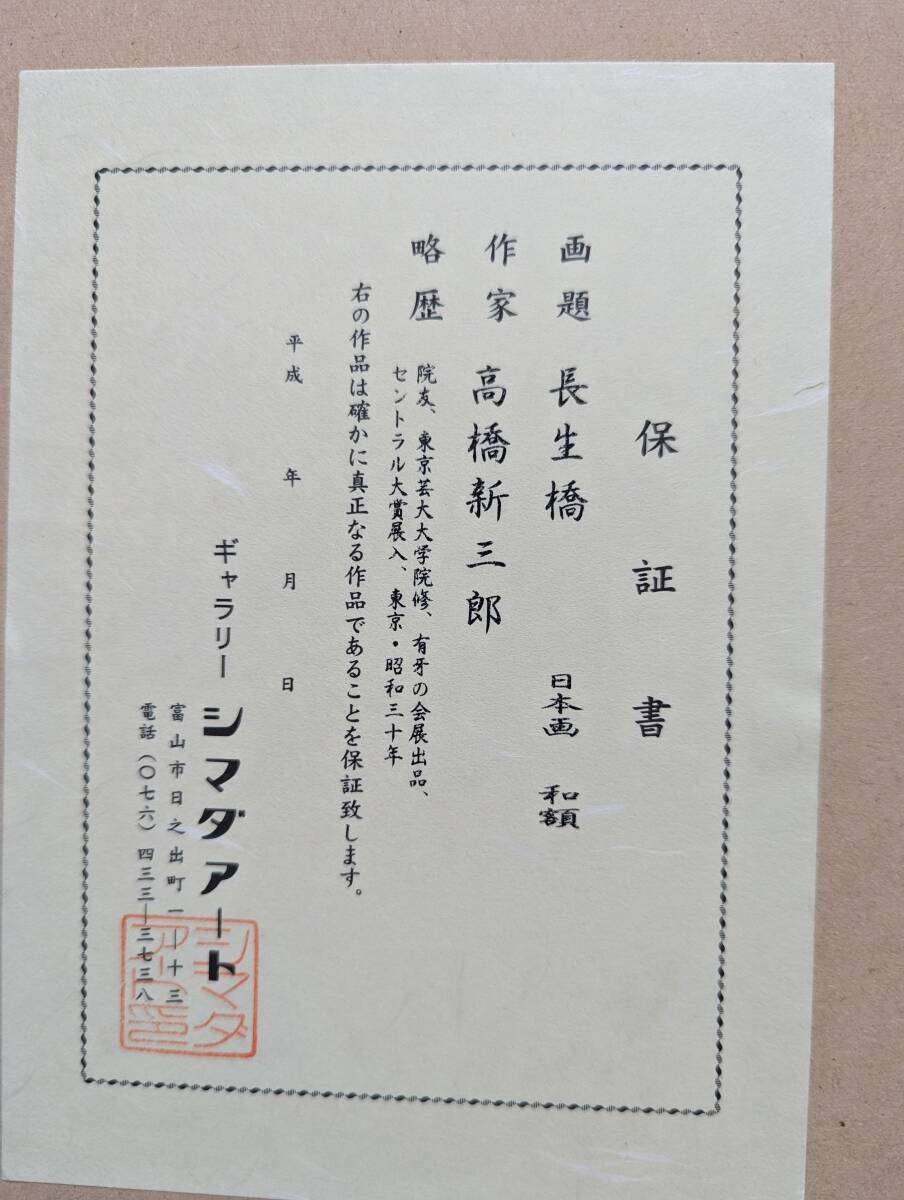 保証書
画題 長生橋 日本画 和額
作家 高橋新三郎
略歴 院友、東京芸大大学院修、有牙の会展出品、
セントラル大賞展入、東京・昭和三十年
右の作品は確かに真正なる作品であることを保証致します。
平成 年 月 日
ギャラリー シマダアート
富山市日之出町一―十三
電話(〇七六)四三三―三七三八
シマダ
アート印